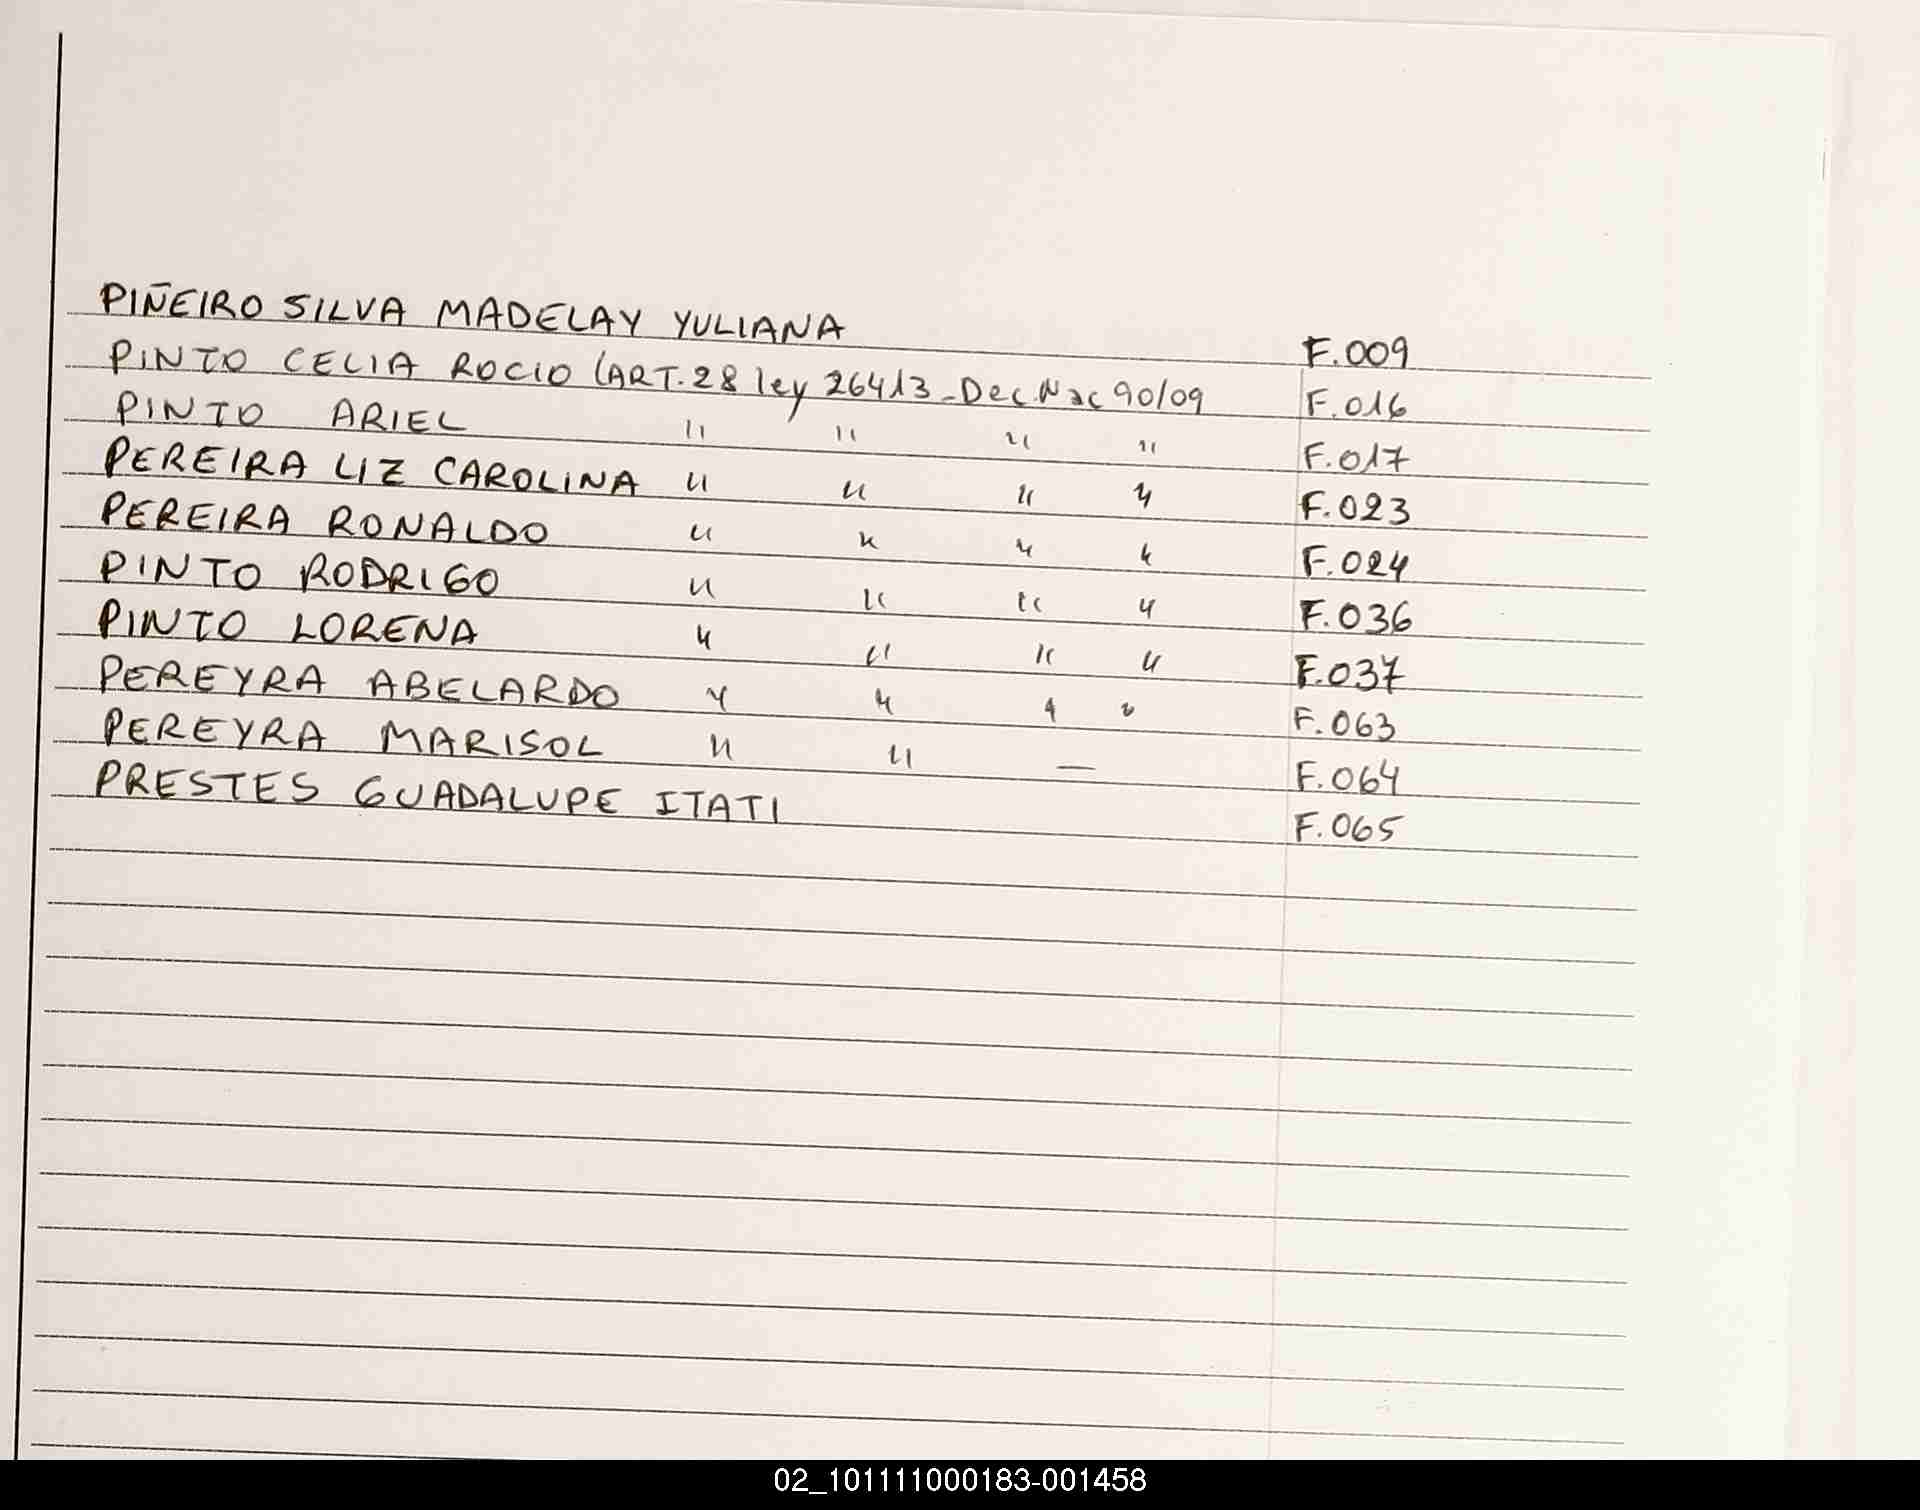 PIÑEIRO SILVA MADELAY YULIANA F.009
PINTO CELIA ROCIO (ART. 28 ley 26413 - Dec. Nac 90/09 F.016
PINTO ARIEL " " " " F.017
PEREIRA LIZ CAROLINA " " " " F.023
PEREIRA RONALDO " " " " F.024
PINTO RODRIGO " " " " F.036
PINTO LORENA " " " " F.037
PEREYRA ABELARDO " " " " F.063
PEREYRA MARISOL " " — F.064
PRESTES GUADALUPE ITATI F.065
02_101111000183-001458